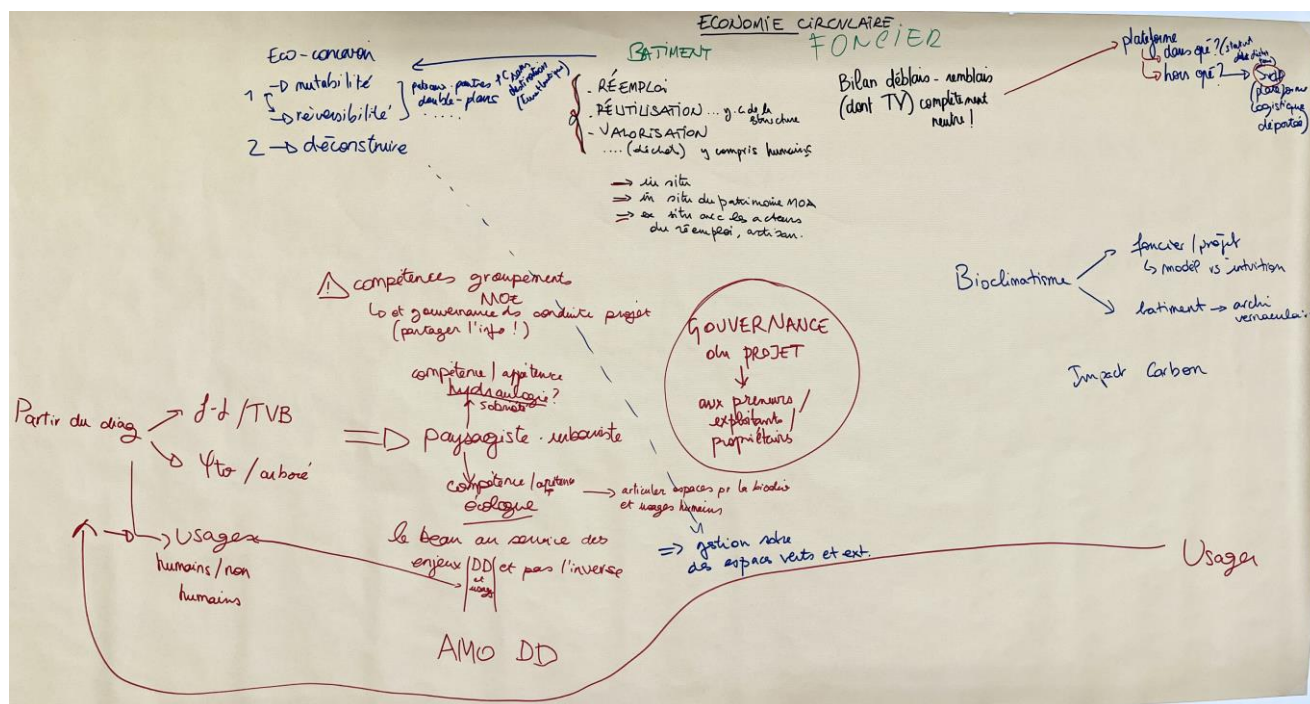 ECONOMIE CIRCULAIRE
FONCIER
BATIMENT
Eco-conception
1 → mutabilité
→ réversibilité
double-plans
.....
2 → déconstruire
- RÉEMPLOI
- RÉUTILISATION ... y.c de la structure
- VALORISATION
.... (déchet) y compris humains
→ in situ
⇒ in situ du patrimoine MOA
⇒ ex situ avec les acteurs
du réemploi, artisan.
Bilan déblais - remblais
(dont TV) complètement
neutre!
plateforme
→ dans
→ hors
(plateforme
logistique
déportée)
Bioclimatisme
foncier / projet
↳ modél vs intuition
batiment → archi
vernaculai
Impact Carbon
⚠ compétences groupement
MOE
↳ et gouvernance de conduite projet
(partager l'info!)
GOUVERNANCE
du PROJET
↓
aux preneurs /
exploitants /
propriétairs
compétence / appétence
hydraulogie?
sobriété
Partir du diag
f-f / TVB
φto / arboré
⇒ paysagiste - urbaniste
compétence / appétence
écologue
→ articuler espaces pr la biodiv
et usages humains
→ Usages
humains / non
humains
le beau au service des
enjeux |DD| et pas l'inverse
et
usages
⇒ gestion sobre
des espaces verts et ext.
Usages
AMO DD